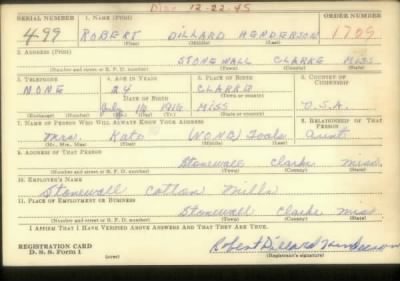 Disc 12-22-45
SERIAL NUMBER 1. NAME (Print) ORDER NUMBER
499 ROBERT DILLARD HENDERSON 1709
(First) (Middle) (Last)
2. ADDRESS (Print)
STONEWALL CLARKE MISS
(Number and street or R. F. D. number) (Town) (County) (State)
3. TELEPHONE 4. AGE IN YEARS 5. PLACE OF BIRTH 6. COUNTRY OF CITIZENSHIP
NONE 24 CLARKE
DATE OF BIRTH (Town or county)
July 14 1916 MISS U.S.A.
(Exchange) (Number) (Mo.) (Day) (Yr.) (State or country)
7. NAME OF PERSON WHO WILL ALWAYS KNOW YOUR ADDRESS 8. RELATIONSHIP OF THAT PERSON
Mrs. Kate NONE Aunt
(Mr., Mrs., Miss) (First) (Middle) (Last)
9. ADDRESS OF THAT PERSON
Stonewall Clarke Miss
(Number and street or R. F. D. number) (Town) (County) (State)
10. EMPLOYER'S NAME
Stonewall Cotton Mills
11. PLACE OF EMPLOYMENT OR BUSINESS
Stonewall Clarke Miss
(Number and street or R. F. D. number) (Town) (County) (State)
I AFFIRM THAT I HAVE VERIFIED ABOVE ANSWERS AND THAT THEY ARE TRUE.
REGISTRATION CARD Robert Dillard Henderson
D. S. S. Form 1 (over) (Registrant's signature)